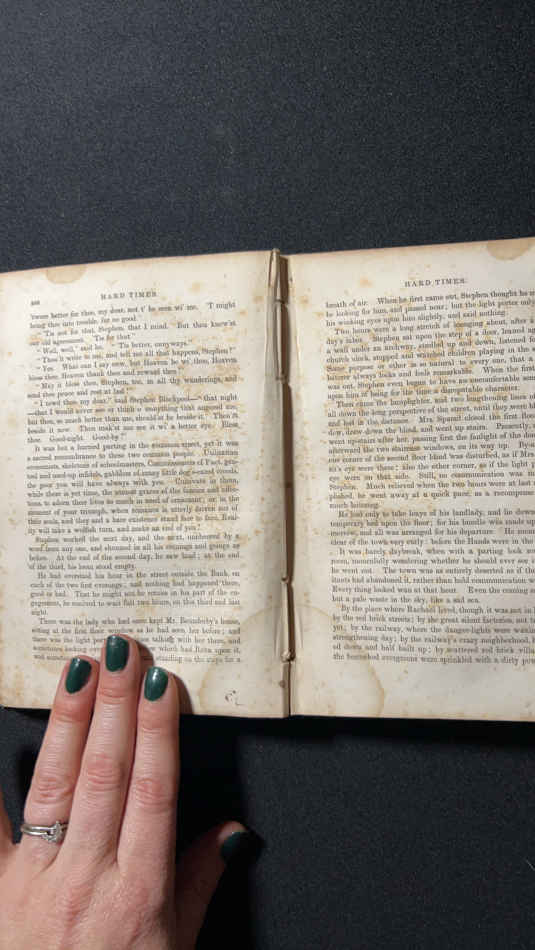 HARD TIMES
'twere better for thee, my dear, not t' be seen wi' me. 'T might
bring thee into trouble, fur no good."
"'Tis not for that, Stephen, that I mind. But thou know'st
our old agreement. 'Tis for that."
"Well, well," said he. "'Tis better, onnyways."
"Thou'lt write to me, and tell me all that happens, Stephen?"
"Yes. What can I say now, but Heaven be wi' thee, Heaven
bless thee, Heaven thank thee and reward thee!"
"May it bless thee, Stephen, too, in all thy wanderings, and
send thee peace and rest at last!"
"I towd thee, my dear," said Stephen Blackpool—"that night
—that I would never see or think o' onnything that angered me,
but thou, so much better than me, should'st be beside it. Thou'rt
beside it now. Thou mak'st me see it wi' a better eye. Bless
thee. Good-night. Good-by!"
It was but a hurried parting in the common street, yet it was
a sacred remembrance to these two common people. Utilitarian
economists, skeletons of schoolmasters, Commissioners of Fact, gen-
teel and used-up infidels, gabblers of many little dog's-eared creeds,
the poor you will have always with you. Cultivate in them,
while there is yet time, the utmost graces of the fancies and affec-
tions, to adorn their lives so much in need of ornament; or, in the
moment of your triumph, when romance is utterly driven out of
their souls, and they and a bare existence stand face to face, Real-
ity will take a wolfish turn, and make an end of you!
Stephen worked the next day, and the next, uncheered by a
word from any one, and shunned in all his comings and goings as
before. At the end of the second day, he saw land; at the end
of the third, his loom stood empty.
He had overstaid his hour in the street outside the Bank, on
each of the two first evenings; and nothing had happened there,
good or bad. That he might not be remiss in his part of the en-
gagement, he resolved to wait full two hours, on this third and last
night.
There was the lady who had once kept Mr. Bounderby's house,
sitting at the first floor window as he had seen her before; and
there was the light porter, sometimes talking with her there, and
sometimes looking over which had BANK upon it,
and sometimes standing on the steps for a
HARD TIMES.
breath of air. When he first came out, Stephen thought he m
be looking for him, and passed near; but the light porter only
his winking eyes upon him slightly, and said nothing.
Two hours were a long stretch of lounging about, after a
day's labor. Stephen sat upon the step of a door, leaned ag
a wall under an archway, strolled up and down, listened fo
church clock, stopped and watched children playing in the s
Some purpose or other is so natural to every one, that a
loiterer always looks and feels remarkable. When the first
was out, Stephen even began to have an uncomfortable sen
upon him of being for the time a disreputable character.
Then came the lamplighter, and two lengthening lines of
all down the long perspective of the street, until they were bl
and lost in the distance. Mrs. Sparsit closed the first floo
dow, drew down the blind, and went up stairs. Presently,
went up-stairs after her, passing first the fanlight of the doo
afterward the two staircase windows, on its way up. By-a
one corner of the second floor blind was disturbed, as if Mrs
sit's eye were there; also the other corner, as if the light p
eye were on that side. Still, no communication was m
Stephen. Much relieved when the two hours were at last
plished, he went away at a quick pace, as a recompense
much loitering.
He had only to take leave of his landlady, and lie down
temporary bed upon the floor; for his bundle was made up
morrow, and all was arranged for his departure. He mean
clear of the town very early: before the Hands were in the
It was barely daybreak, when with a parting look ro
room, mournfully wondering whether he should ever see i
he went out. The town was as entirely deserted as if the
itants had abandoned it, rather than hold communication w
Every thing looked wan at that hour. Even the coming s
but a pale waste in the sky, like a sad sea.
By the place where Rachael lived, though it was not in h
by the red brick streets; by the great silent factories, not tr
yet; by the railway, where the danger-lights were wanin
strengthening day; by the railway's crazy neighborhood, h
ed down and half built up; by scattered red brick villa
the besmoked evergreens were sprinkled with a dirty pow